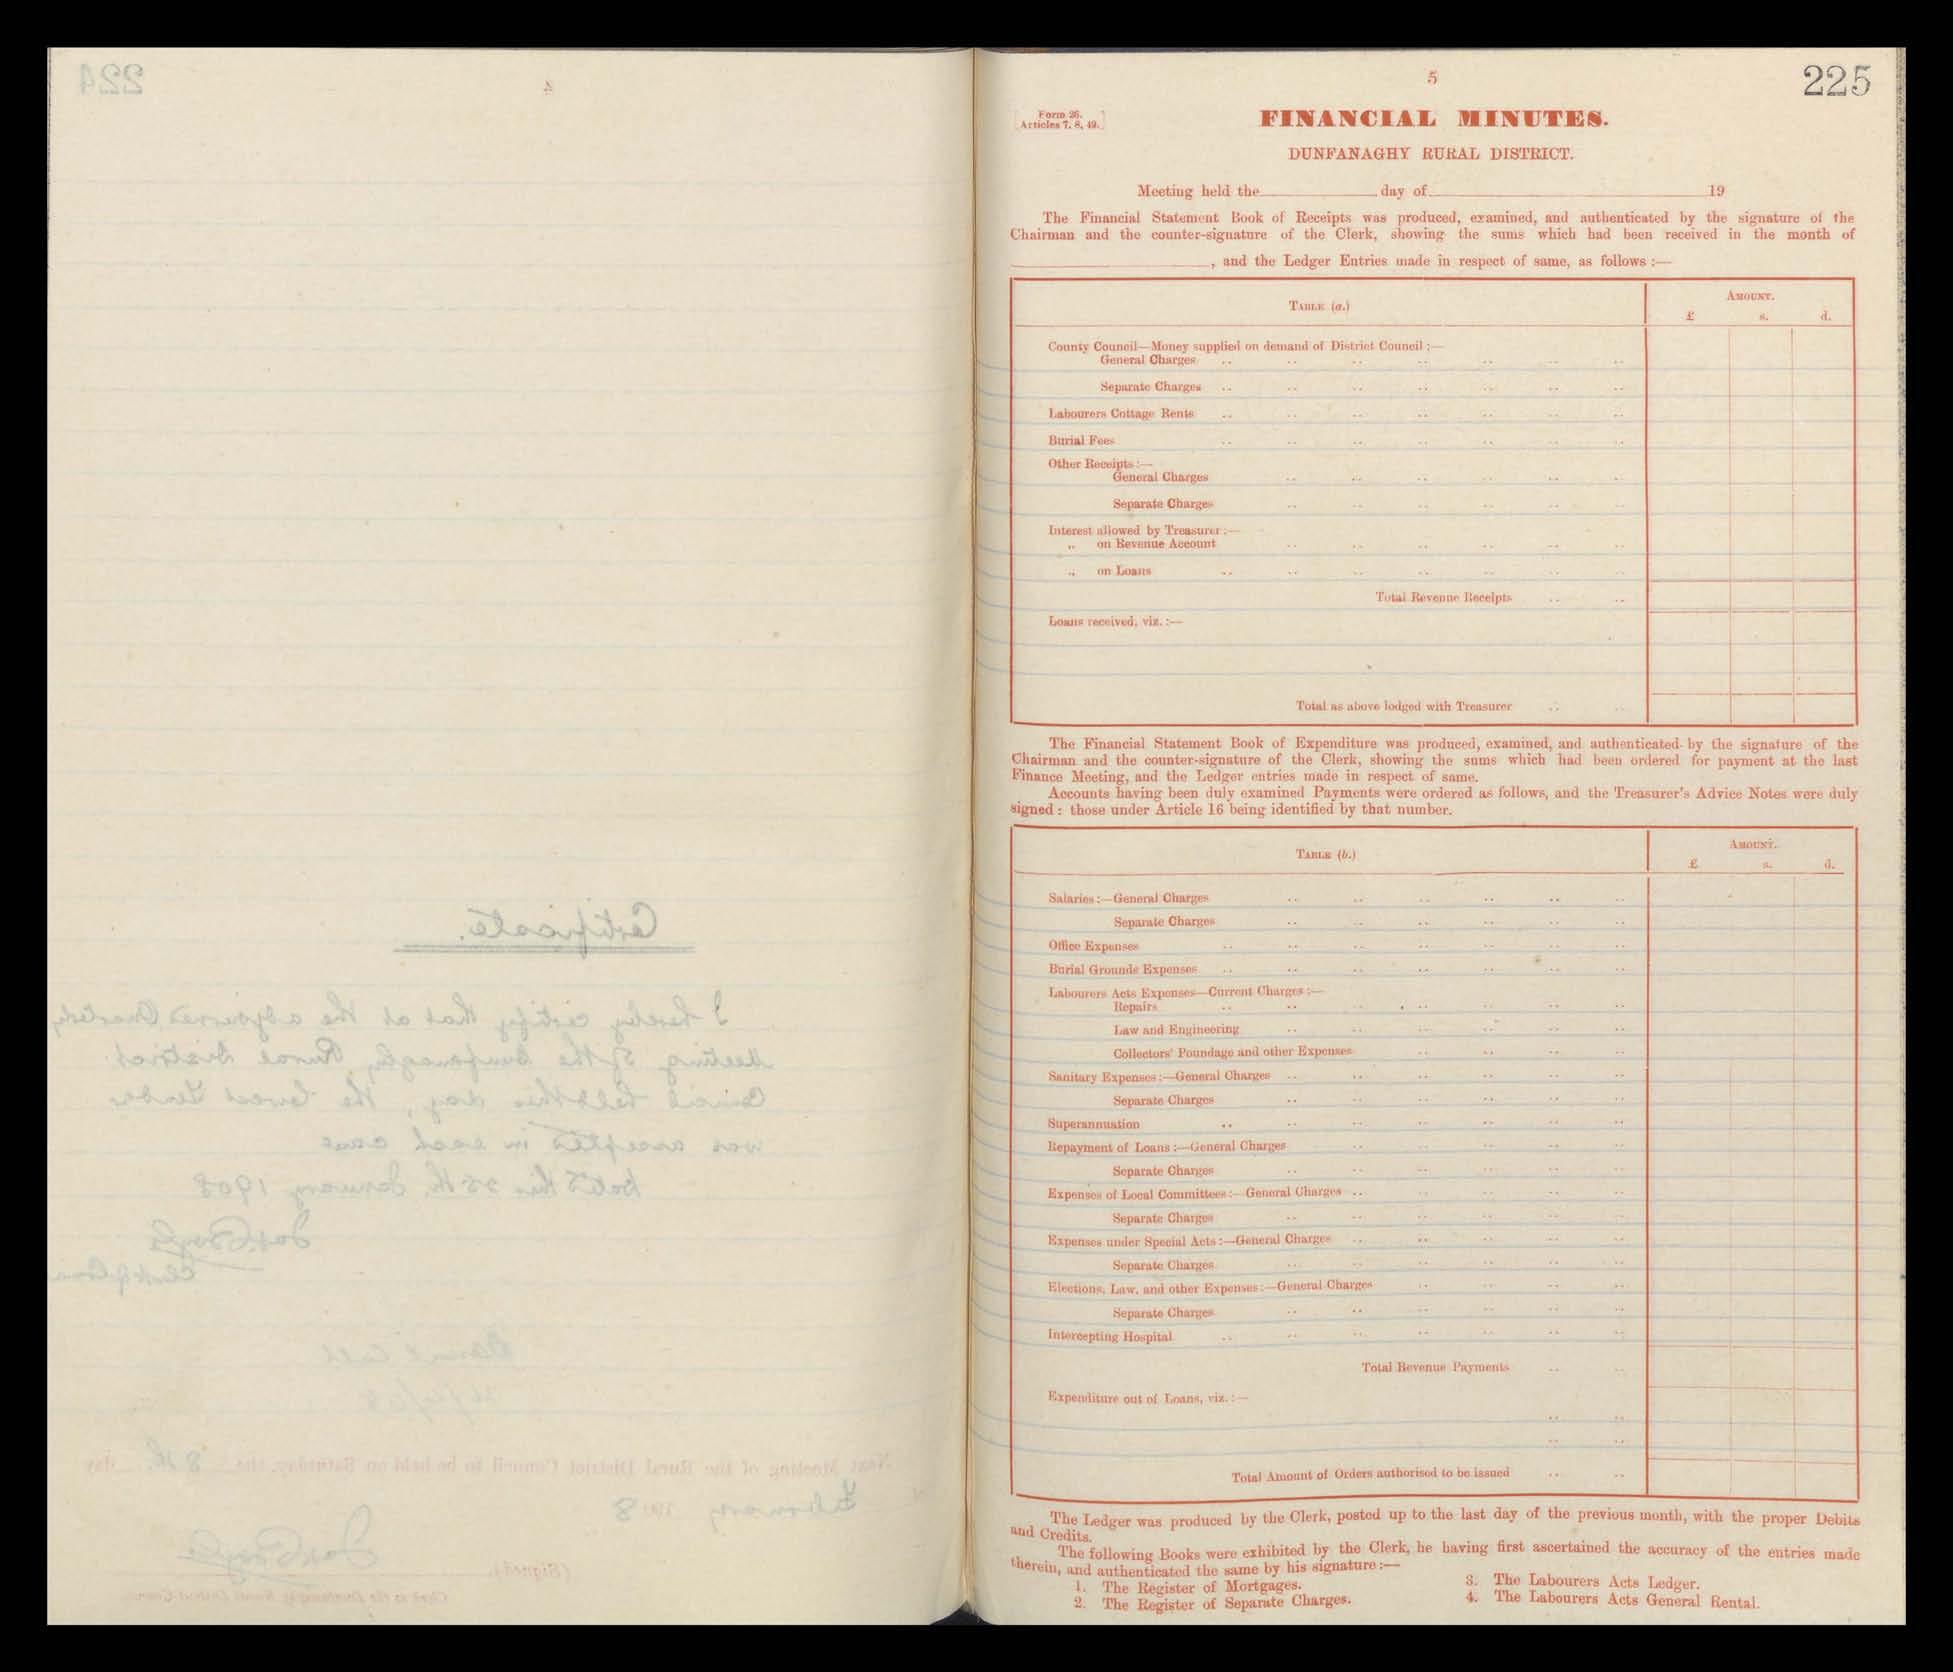 224
4
Certificate.
I hereby certify that at the adjourned Quarterly
Meeting of the Dunfanaghy Rural District
Council held this day, the lowest Tender
was accepted in each case
Dated this 25th January 1908
Jas Boyle
Clerk of
Next Meeting of the Rural District Council to be held on Saturday, the 8th day
February 1908
(Signed)
Clerk to the Dunfanaghy Rural District Council
5
225
Form 26.
Articles 7, 8, 49.
FINANCIAL MINUTES.
DUNFANAGHY RURAL DISTRICT.
Meeting held the day of 19
The Financial Statement Book of Receipts was produced, examined, and authenticated by the signature of the
Chairman and the counter-signature of the Clerk, showing the sums which had been received in the month of
, and the Ledger Entries made in respect of same, as follows :—
TABLE (a.)
AMOUNT.
£ s. d.
County Council—Money supplied on demand of District Council :—
General Charges .. .. .. .. .. .. ..
Separate Charges .. .. .. .. .. .. ..
Labourers Cottage Rents .. .. .. .. .. .. ..
Burial Fees .. .. .. .. .. .. ..
Other Receipts :—
General Charges .. .. .. .. .. ..
Separate Charges .. .. .. .. .. ..
Interest allowed by Treasurer :—
„ on Revenue Account .. .. .. .. .. ..
„ on Loans .. .. .. .. .. .. ..
Total Revenue Receipts .. ..
Loans received, viz. :—
Total as above lodged with Treasurer .. ..
The Financial Statement Book of Expenditure was produced, examined, and authenticated by the signature of the
Chairman and the counter-signature of the Clerk, showing the sums which had been ordered for payment at the last
Finance Meeting, and the Ledger entries made in respect of same.
Accounts having been duly examined Payments were ordered as follows, and the Treasurer's Advice Notes were duly
signed : those under Article 16 being identified by that number.
TABLE (b.)
AMOUNT.
£ s. d.
Salaries :—General Charges .. .. .. .. .. ..
Separate Charges .. .. .. .. .. ..
Office Expenses .. .. .. .. .. .. ..
Burial Grounds Expenses .. .. .. .. .. .. ..
Labourers Acts Expenses—Current Charges :—
Repairs .. .. .. .. .. .. ..
Law and Engineering .. .. .. .. .. ..
Collectors' Poundage and other Expenses .. .. .. ..
Sanitary Expenses :—General Charges .. .. .. .. .. ..
Separate Charges .. .. .. .. .. ..
Superannuation .. .. .. .. .. .. ..
Repayment of Loans :—General Charges .. .. .. .. ..
Separate Charges .. .. .. .. .. ..
Expenses of Local Committees :—General Charges .. .. .. .. ..
Separate Charges .. .. .. .. .. ..
Expenses under Special Acts :—General Charges .. .. .. .. ..
Separate Charges .. .. .. .. .. ..
Elections, Law, and other Expenses :—General Charges .. .. .. ..
Separate Charges .. .. .. .. .. ..
Intercepting Hospital .. .. .. .. .. .. ..
Total Revenue Payments .. ..
Expenditure out of Loans, viz. :—
.. ..
.. ..
Total Amount of Orders authorised to be issued .. ..
The Ledger was produced by the Clerk, posted up to the last day of the previous month, with the proper Debits
and Credits.
The following Books were exhibited by the Clerk, he having first ascertained the accuracy of the entries made
therein, and authenticated the same by his signature :—
1. The Register of Mortgages.
2. The Register of Separate Charges.
3. The Labourers Acts Ledger.
4. The Labourers Acts General Rental.